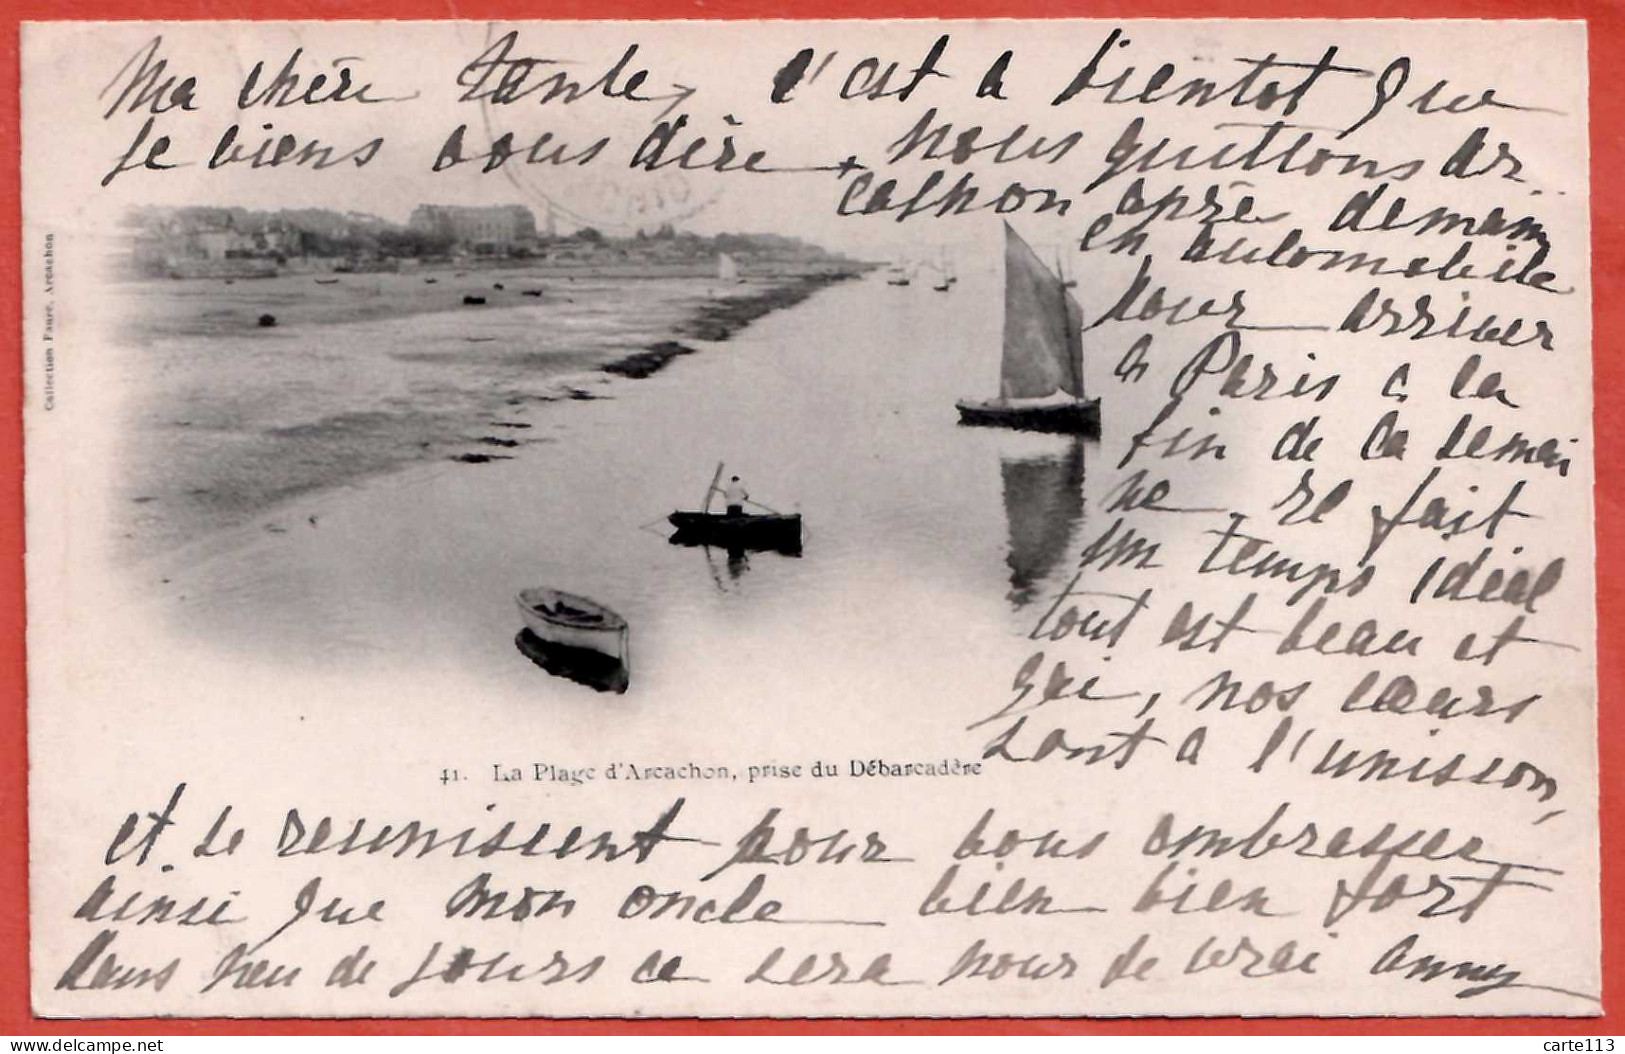 Ma chère tante, c'est a bientot que
je viens vous dire, nous quittons Ar..
cachon après demain
en automobile
pour arriver
a Paris a la
fin de la semai
ne, il fait
un temps idéal
tout est beau et
gai, nos cœurs
sont a l'unisson,
et se reunissent pour vous embrasser
ainsi que mon oncle bien bien fort
dans peu de jours ce sera pour de vrai Anny
Collection Faure, Arcachon
41. La Plage d'Arcachon, prise du Débarcadère
delcampe.net
carte113